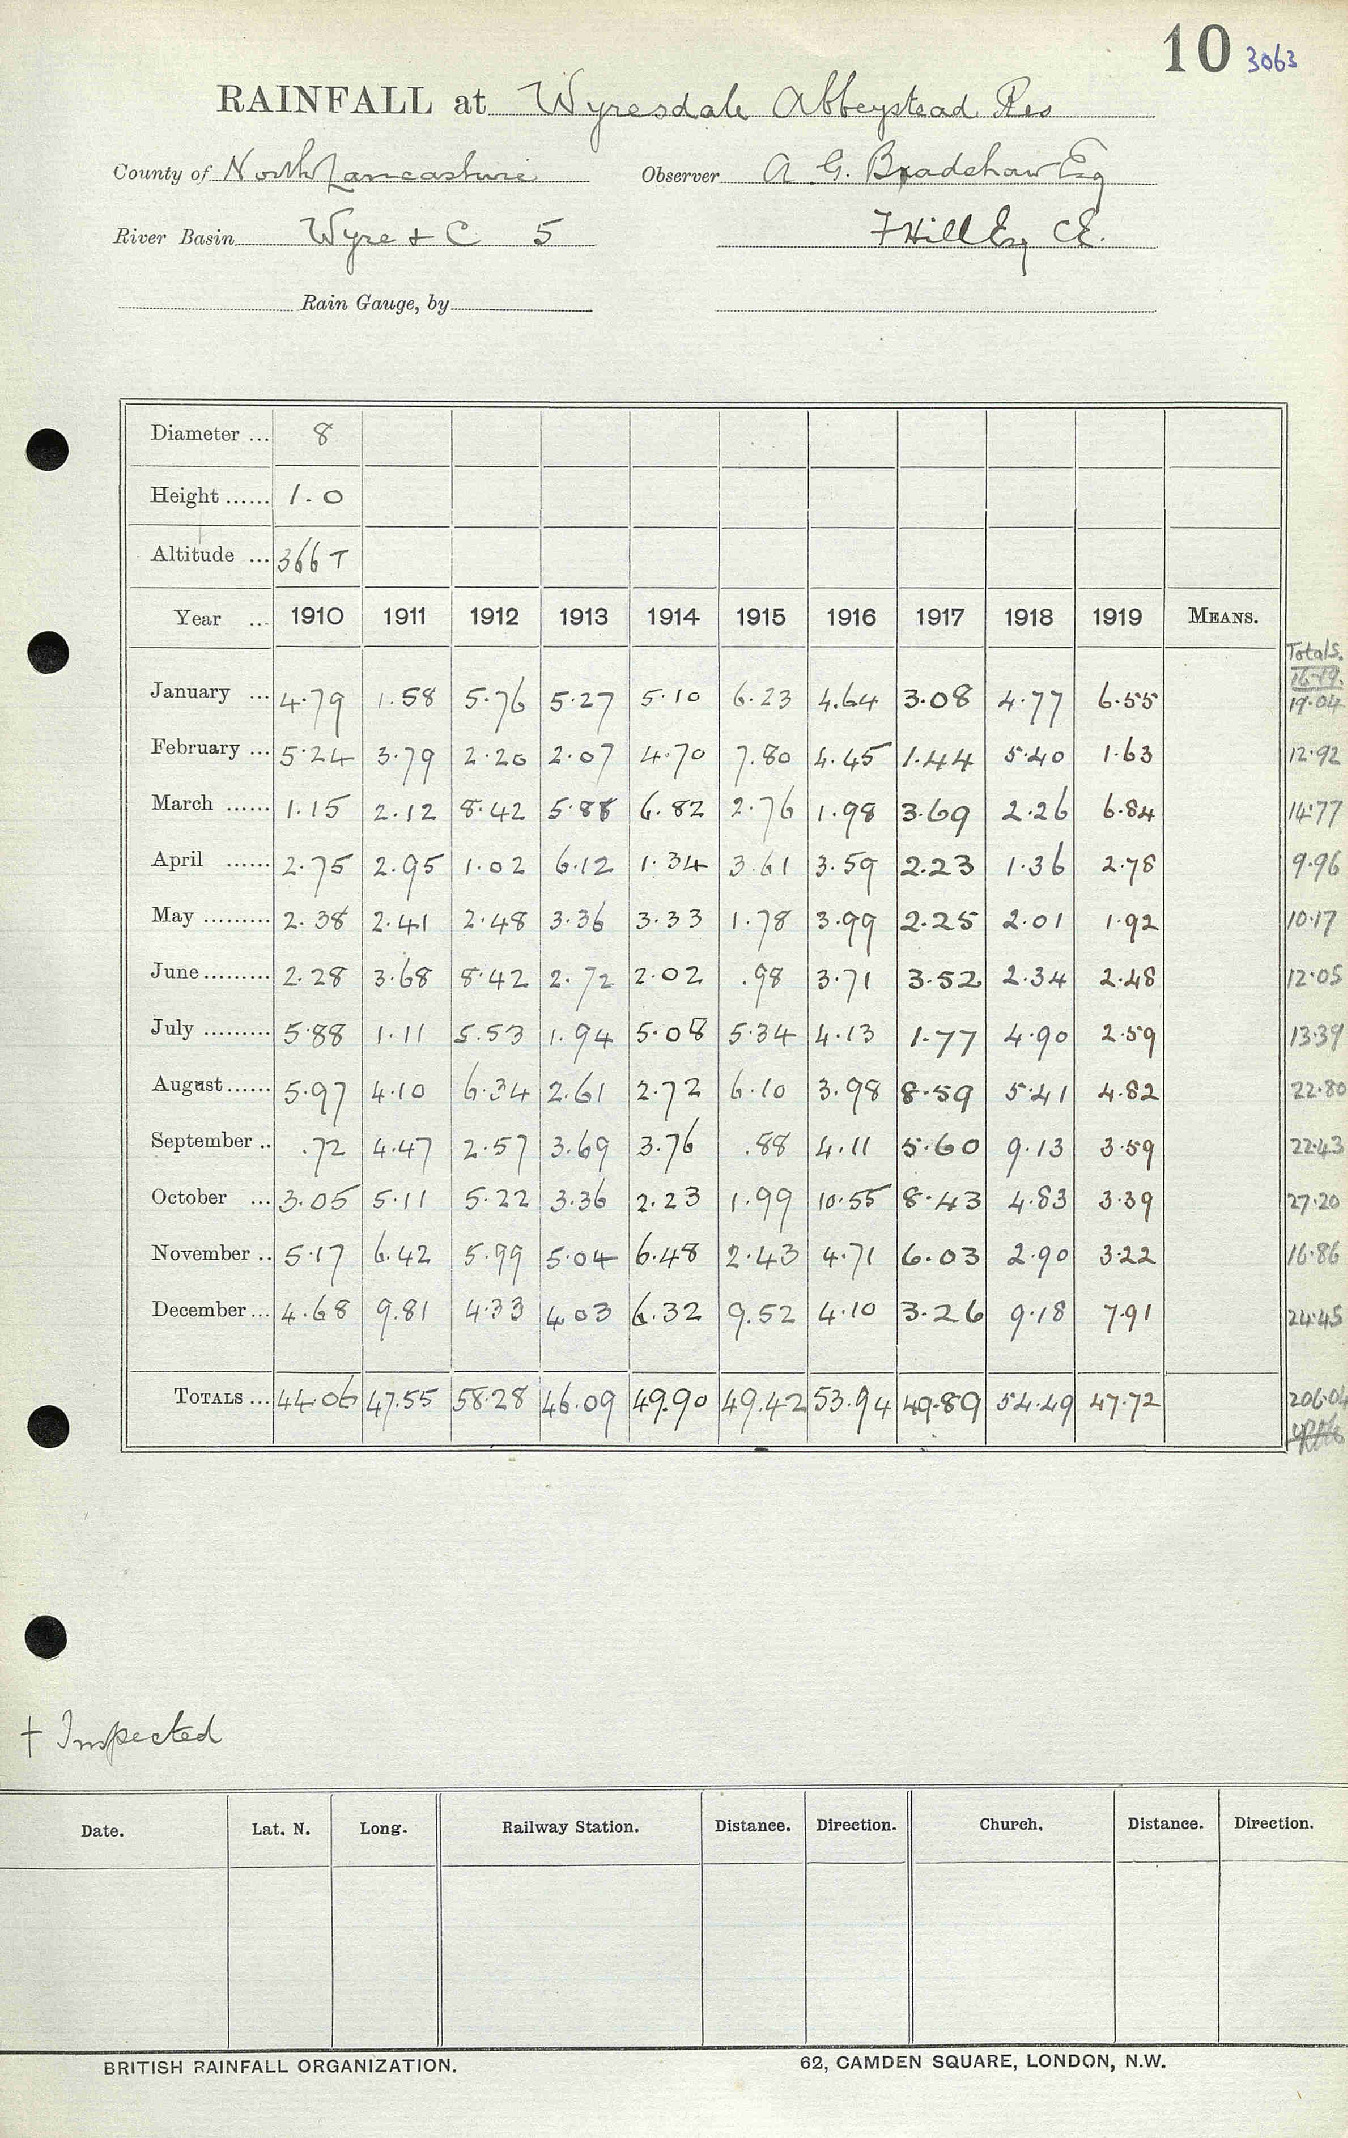 10 3063
RAINFALL at Wyresdale Abbeystead Res
County of North Lancashire Observer A G. Bradshaw Esq
River Basin Wyre & C 5 F Hill Esq CE.
Rain Gauge, by
Diameter ... 8
Height ...... 1.0
Altitude ... 366 T
Year ... 1910 1911 1912 1913 1914 1915 1916 1917 1918 1919 MEANS.
Totals.
16-19.
January ... 4.79 1.58 5.76 5.27 5.10 6.23 4.64 3.08 4.77 6.55 19.04
February ... 5.24 3.79 2.20 2.07 4.70 7.80 4.45 1.44 5.40 1.63 12.92
March ...... 1.15 2.12 8.42 5.88 6.82 2.76 1.98 3.69 2.26 6.84 14.77
April ...... 2.75 2.95 1.02 6.12 1.34 3.61 3.59 2.23 1.36 2.78 9.96
May ......... 2.38 2.41 2.48 3.36 3.33 1.78 3.99 2.25 2.01 1.92 10.17
June ......... 2.28 3.68 8.42 2.72 2.02 .98 3.71 3.52 2.34 2.48 12.05
July ......... 5.88 1.11 5.53 1.94 5.08 5.34 4.13 1.77 4.90 2.59 13.39
August ...... 5.97 4.10 6.34 2.61 2.72 6.10 3.98 8.59 5.41 4.82 22.80
September .. .72 4.47 2.57 3.69 3.76 .88 4.11 5.60 9.13 3.59 22.43
October ... 3.05 5.11 5.22 3.36 2.23 1.99 10.55 8.43 4.83 3.39 27.20
November .. 5.17 6.42 5.99 5.04 6.48 2.43 4.71 6.03 2.90 3.22 16.86
December ... 4.68 9.81 4.33 4.03 6.32 9.52 4.10 3.26 9.18 7.91 24.45
TOTALS ... 44.06 47.55 58.28 46.09 49.90 49.42 53.94 49.89 54.49 47.72 206.04
† Inspected
Date. Lat. N. Long. Railway Station. Distance. Direction. Church. Distance. Direction.
BRITISH RAINFALL ORGANIZATION. 62, CAMDEN SQUARE, LONDON, N.W.